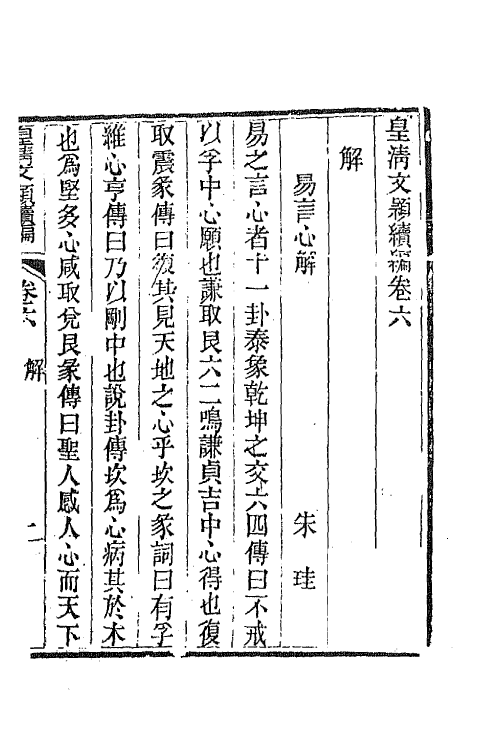 皇清文穎續編卷六
解
易言心解
朱珪
易之言心者十一卦泰象乾坤之交六四傳曰不戒
以孚中心願也謙取艮六二鳴謙貞吉中心得也復
取震彖傳曰復其見天地之心乎坎之彖詞曰有孚
維心亨傳曰乃以剛中也說卦傳坎為心病其於木
也為堅多心咸取兌艮彖傳曰聖人感人心而天下
皇清文穎續編
卷六
解
二